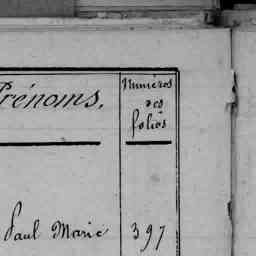 Prénoms.
Numéros
des
folios
Paul Marie 397